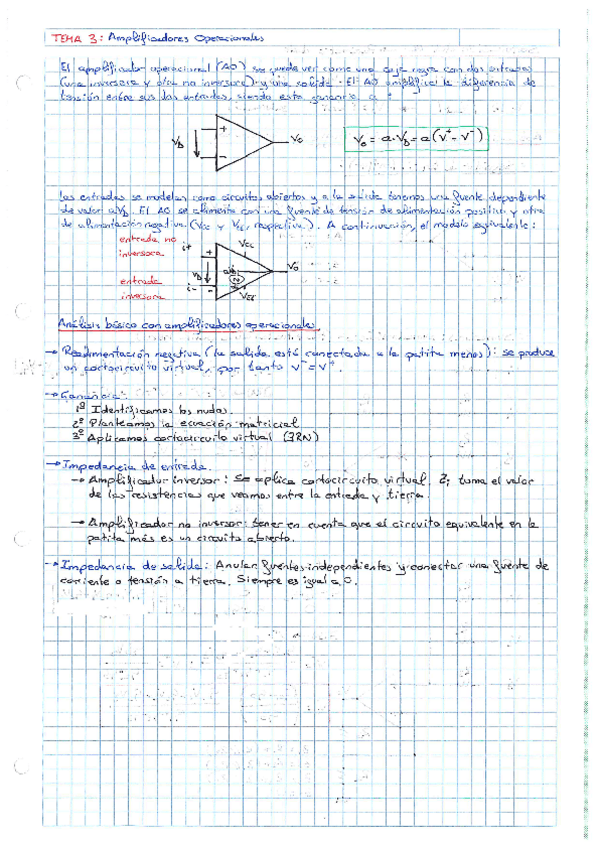 TEMA 3: Amplificadores Operacionales
El amplificador operacional (AO) se puede ver como una caja negra con dos entradas
(una inversora y otra no inversora) y una salida. El AO amplifica la diferencia de
tensión entre sus dos entradas, siendo esta ganancia a:
+
V_D
-
V_o
V_o = a·V_D = a(V⁺ - V⁻)
Las entradas se modelan como circuitos abiertos y a la salida tenemos una fuente dependiente
de valor aV_D. El AO se alimenta con una fuente de tensión de alimentación positiva y otra
de alimentación negativa (V_CC y V_EE, respectiva.). A continuación, el modelo equivalente:
entrada no
inversora
i+
+
V_CC
V_D
V_o
entrada
inversora
i-
-
V_EE
Análisis básico con amplificadores operacionales
→ Realimentación negativa (la salida está conectada a la patita menos): se produce
un cortocircuito virtual, por tanto V⁻=V⁺.
→ Ganancia:
1º Identificamos los nudos.
2º Planteamos la ecuación matricial
3º Aplicamos cortocircuito virtual (∃RN)
→ Impedancia de entrada.
→ Amplificador inversor: Se aplica cortocircuito virtual. Zi toma el valor
de las resistencias que veamos entre la entrada y tierra.
→ Amplificador no inversor: tener en cuenta que el circuito equivalente en la
patita más es un circuito abierto.
→ Impedancia de salida: Anular fuentes independientes y conectar una fuente de
corriente o tensión a tierra. Siempre es igual a 0.